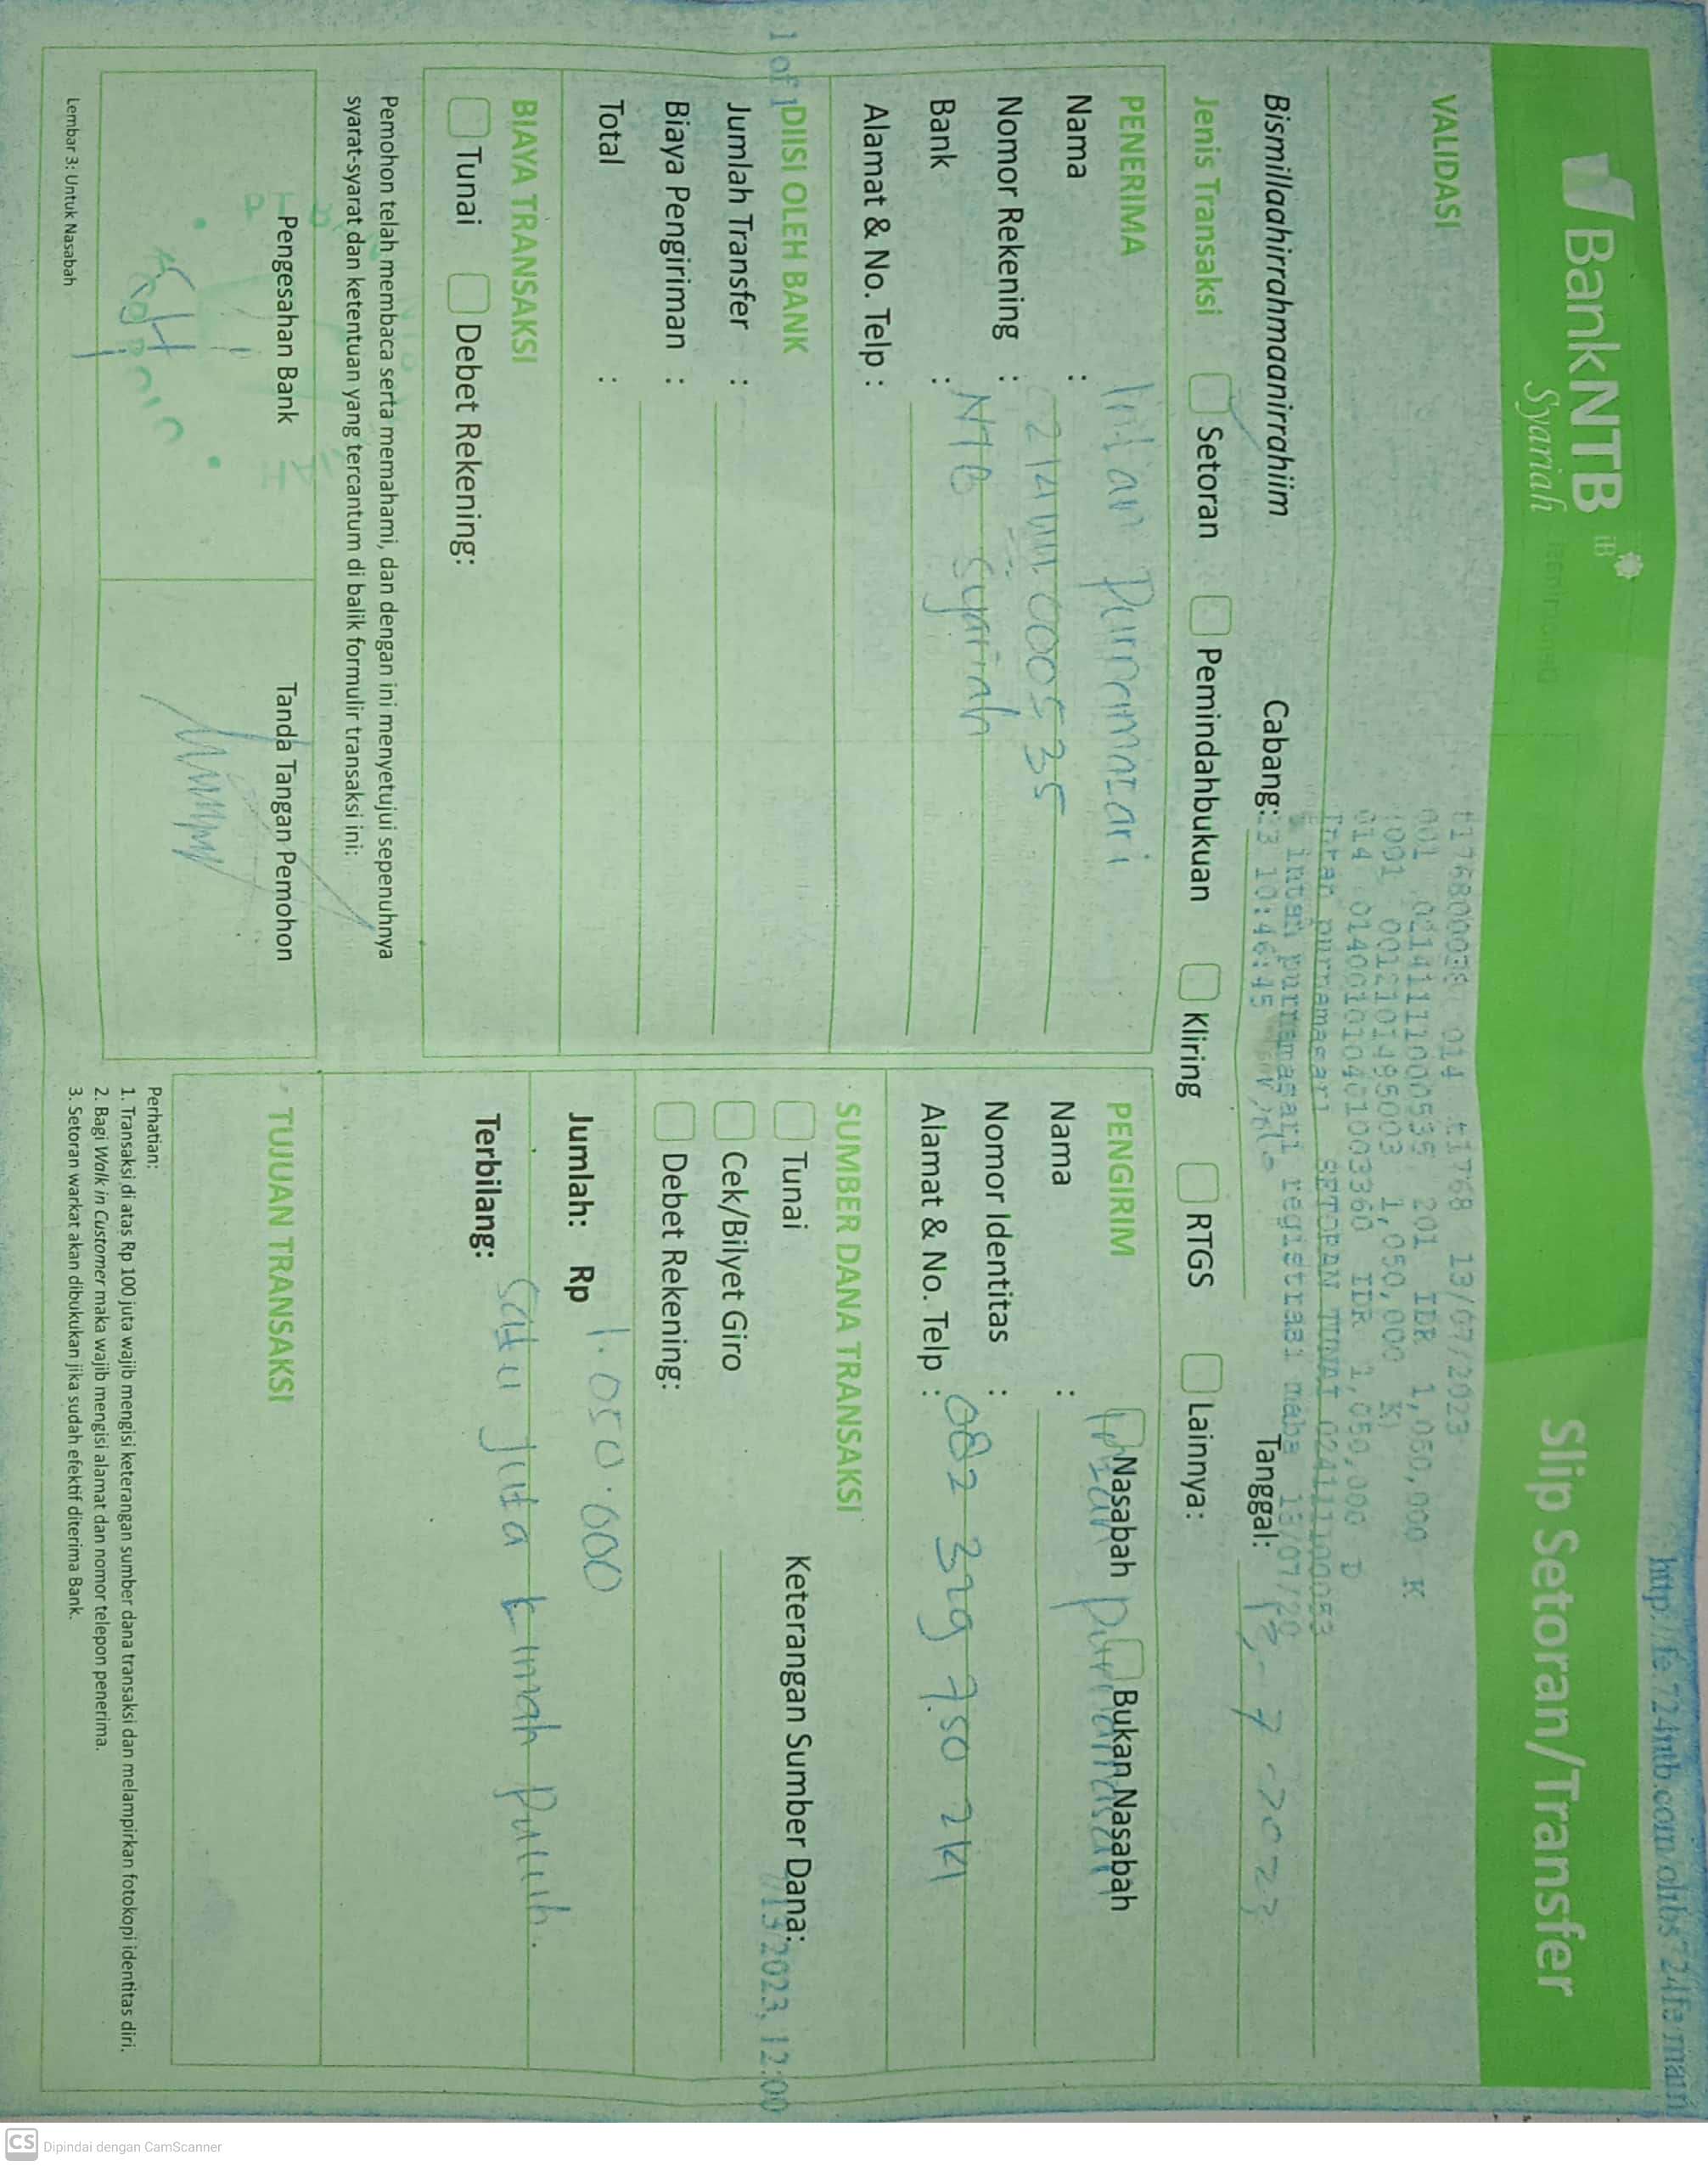 http://fe.724ntb.com/olibs724fe/main
BankNTB iB
Syariah
Slip Setoran/Transfer
VALIDASI
014 13/07/2023
201 IDR 1,050,000 K
1,050,000 K)
014 IDR 1,050,000 D
Intan purnamasari SETORAN TUNAI
intan purnamasari registrasi maba 13/07/20
23 10:46:45
Bismillaahirrahmaanirrahiim
Cabang:
Tanggal: 13 - 7 - 2023
Jenis Transaksi
Setoran
Pemindahbukuan
Kliring
RTGS
Lainnya:
PENERIMA
Nama : Intan Purnamasari
Nomor Rekening :
Bank : NTB Syariah
Alamat & No. Telp :
PENGIRIM
Nasabah
Bukan Nasabah
Nama : Intan Purnamasari
Nomor Identitas :
Alamat & No. Telp :
DIISI OLEH BANK
1 of 1
Jumlah Transfer :
Biaya Pengiriman :
Total :
SUMBER DANA TRANSAKSI
Tunai
Keterangan Sumber Dana:
7/13/2023, 12:00
Cek/Bilyet Giro
Debet Rekening:
BIAYA TRANSAKSI
Tunai
Debet Rekening:
Jumlah: Rp 1.050.000
Terbilang: Satu juta Limah Puluh.
Pemohon telah membaca serta memahami, dan dengan ini menyetujui sepenuhnya
syarat-syarat dan ketentuan yang tercantum di balik formulir transaksi ini:
Pengesahan Bank
Tanda Tangan Pemohon
TUJUAN TRANSAKSI
Perhatian:
1. Transaksi di atas Rp 100 juta wajib mengisi keterangan sumber dana transaksi dan melampirkan fotokopi identitas diri.
2. Bagi Walk in Customer maka wajib mengisi alamat dan nomor telepon penerima.
3. Setoran warkat akan dibukukan jika sudah efektif diterima Bank.
Lembar 3: Untuk Nasabah
CS Dipindai dengan CamScanner